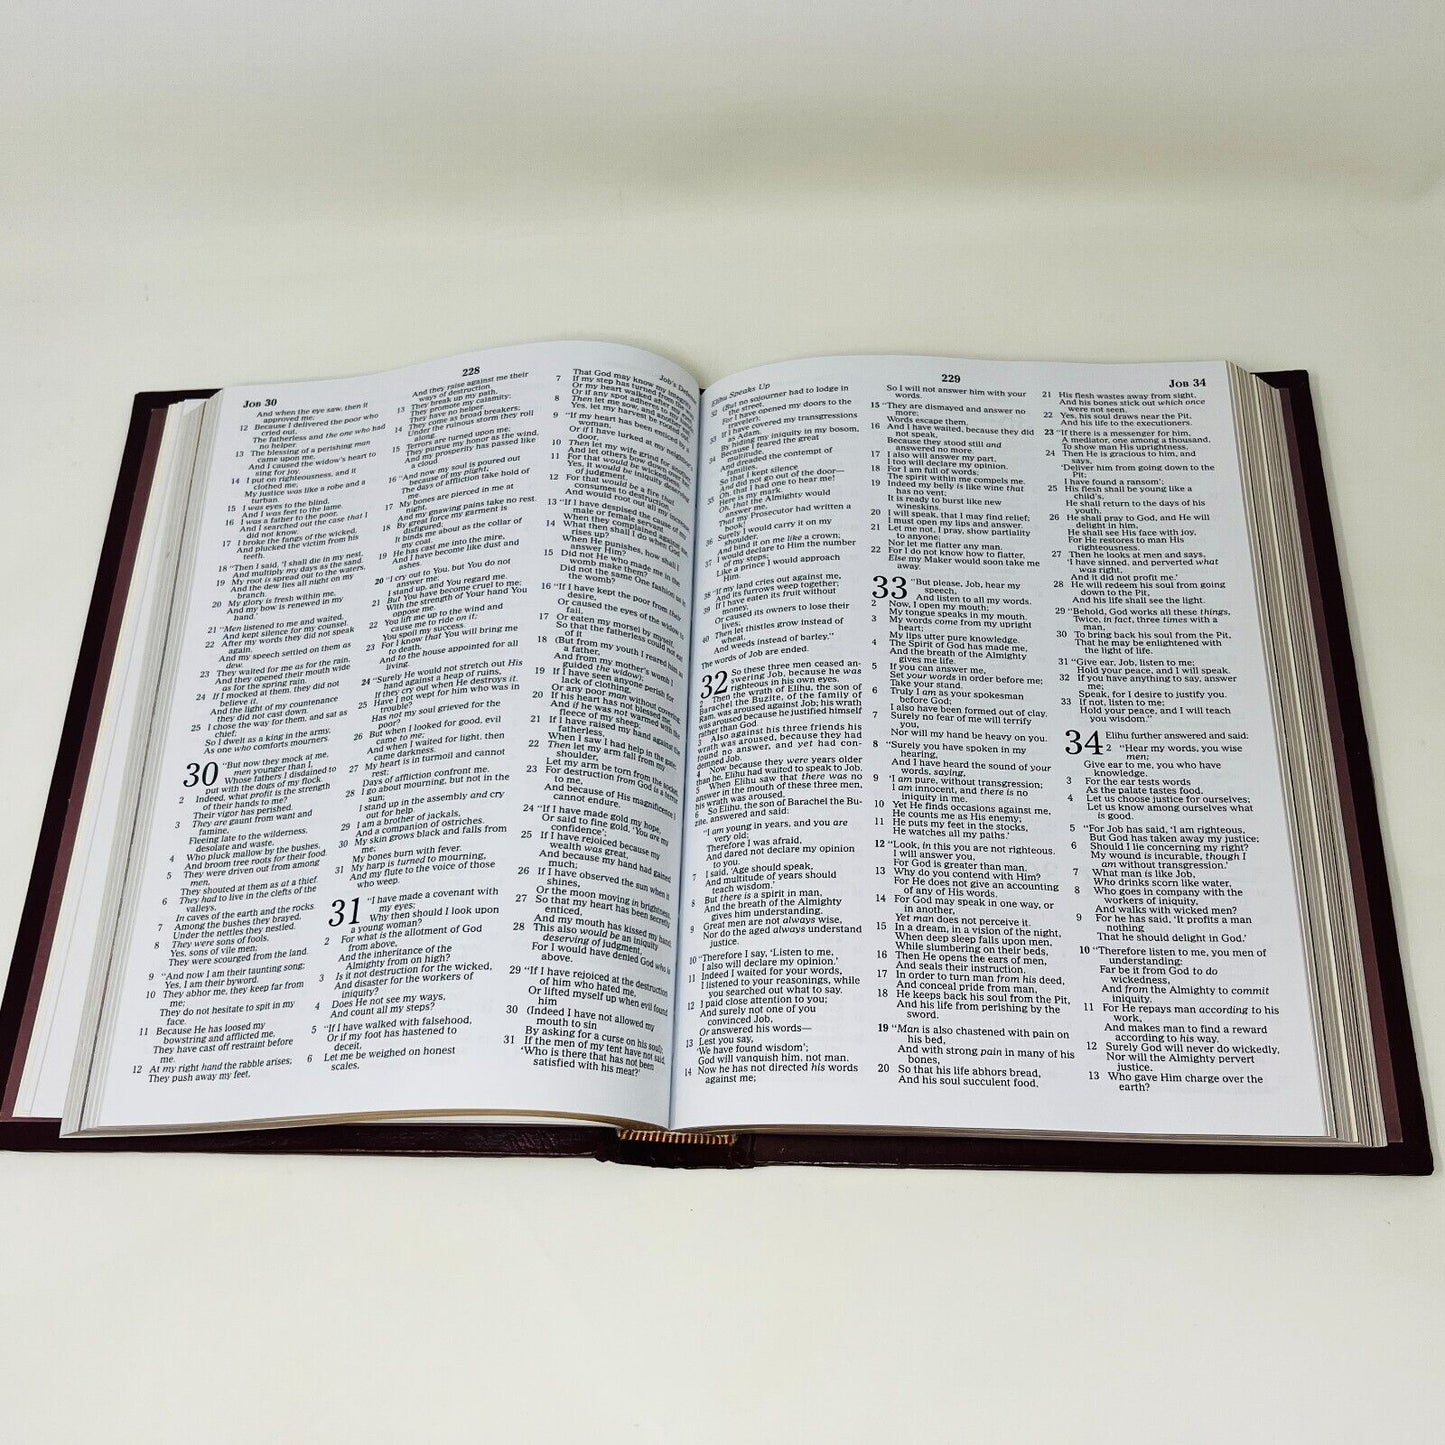 228
JOB 30
Job's De
And when the eye saw, then it
approved me;
12 Because I delivered the poor who
cried out,
The fatherless and the one who had
no helper.
13 The blessing of a perishing man
came upon me,
And I caused the widow's heart to
sing for joy.
14 I put on righteousness, and it
clothed me;
My justice was like a robe and a
turban.
15 I was eyes to the blind,
And I was feet to the lame.
16 I was a father to the poor,
And I searched out the case that I
did not know.
17 I broke the fangs of the wicked,
And plucked the victim from his
teeth.
18 "Then I said, 'I shall die in my nest,
And multiply my days as the sand.
19 My root is spread out to the waters,
And the dew lies all night on my
branch.
20 My glory is fresh within me,
And my bow is renewed in my
hand.'
21 "Men listened to me and waited,
And kept silence for my counsel.
22 After my words they did not speak
again,
And my speech settled on them as
dew.
23 They waited for me as for the rain,
And they opened their mouth wide
as for the spring rain.
24 If I mocked at them, they did not
believe it,
And the light of my countenance
they did not cast down.
25 I chose the way for them, and sat as
chief;
So I dwelt as a king in the army,
As one who comforts mourners.
30 "But now they mock at me,
men younger than I,
Whose fathers I disdained to
put with the dogs of my flock.
2 Indeed, what profit is the strength
of their hands to me?
Their vigor has perished.
3 They are gaunt from want and
famine,
Fleeing late to the wilderness,
desolate and waste,
4 Who pluck mallow by the bushes,
And broom tree roots for their food.
5 They were driven out from among
men,
They shouted at them as at a thief.
6 They had to live in the clefts of the
valleys,
In caves of the earth and the rocks.
7 Among the bushes they brayed,
Under the nettles they nestled.
8 They were sons of fools,
Yes, sons of vile men;
They were scourged from the land.
9 "And now I am their taunting song;
Yes, I am their byword.
10 They abhor me, they keep far from
me;
They do not hesitate to spit in my
face.
11 Because He has loosed my
bowstring and afflicted me,
They have cast off restraint before
me.
12 At my right hand the rabble arises;
They push away my feet,
And they raise against me their
ways of destruction.
13 They break up my path,
They promote my calamity;
They have no helper.
14 They come as broad breakers;
Under the ruinous storm they roll
along.
15 Terrors are turned upon me;
They pursue my honor as the wind,
And my prosperity has passed like
a cloud.
16 "And now my soul is poured out
because of my plight;
The days of affliction take hold of
me.
17 My bones are pierced in me at
night,
And my gnawing pains take no rest.
18 By great force my garment is
disfigured;
It binds me about as the collar of
my coat.
19 He has cast me into the mire,
And I have become like dust and
ashes.
20 "I cry out to You, but You do not
answer me;
I stand up, and You regard me.
21 But You have become cruel to me;
With the strength of Your hand You
oppose me.
22 You lift me up to the wind and
cause me to ride on it;
You spoil my success.
23 For I know that You will bring me
to death,
And to the house appointed for all
living.
24 "Surely He would not stretch out His
hand against a heap of ruins,
If they cry out when He destroys it.
25 Have I not wept for him who was in
trouble?
Has not my soul grieved for the
poor?
26 But when I looked for good, evil
came to me;
And when I waited for light, then
came darkness.
27 My heart is in turmoil and cannot
rest;
Days of affliction confront me.
28 I go about mourning, but not in the
sun;
I stand up in the assembly and cry
out for help.
29 I am a brother of jackals,
And a companion of ostriches.
30 My skin grows black and falls from
me;
My bones burn with fever.
31 My harp is turned to mourning,
And my flute to the voice of those
who weep.
31 "I have made a covenant with
my eyes;
Why then should I look upon
a young woman?
2 For what is the allotment of God
from above,
And the inheritance of the
Almighty from on high?
3 Is it not destruction for the wicked,
And disaster for the workers of
iniquity?
4 Does He not see my ways,
And count all my steps?
5 "If I have walked with falsehood,
Or if my foot has hastened to
deceit,
6 Let me be weighed on honest
scales,
That God may know my integrity.
7 If my step has turned from
Or my heart walked after my eyes,
Or if any spot adheres to my
8 Then let me sow, and another eat;
Yes, let my harvest be rooted out.
9 "If my heart has been enticed by a
woman,
Or if I have lurked at my neighbor's
door,
10 Then let my wife grind for another,
And let others bow down over her.
11 For that would be wickedness;
Yes, it would be iniquity deserving
of judgment.
12 For that would be a fire that
consumes to destruction,
And would root out all my increase.
13 "If I have despised the cause of my
male or female servant
When they complained against me,
14 What then shall I do when God
rises up?
When He punishes, how shall I
answer Him?
15 Did not He who made me in the
womb make them?
Did not the same One fashion us in
the womb?
16 "If I have kept the poor from their
desire,
Or caused the eyes of the widow to
fail,
17 Or eaten my morsel by myself,
So that the fatherless could not eat
of it
18 (But from my youth I reared him as
a father,
And from my mother's womb I
guided the widow);
19 If I have seen anyone perish for
lack of clothing,
Or any poor man without covering;
20 If his heart has not blessed me,
And if he was not warmed with the
fleece of my sheep;
21 If I have raised my hand against the
fatherless,
When I saw I had help in the gate;
22 Then let my arm fall from my
shoulder,
Let my arm be torn from the socket.
23 For destruction from God is a terror
to me,
And because of His magnificence I
cannot endure.
24 "If I have made gold my hope,
Or said to fine gold, 'You are my
confidence';
25 If I have rejoiced because my
wealth was great,
And because my hand had gained
much;
26 If I have observed the sun when it
shines,
Or the moon moving in brightness,
27 So that my heart has been secretly
enticed,
And my mouth has kissed my hand;
28 This also would be an iniquity
deserving of judgment,
For I would have denied God who is
above.
29 "If I have rejoiced at the destruction
of him who hated me,
Or lifted myself up when evil found
him
30 (Indeed I have not allowed my
mouth to sin
By asking for a curse on his soul);
31 If the men of my tent have not said,
'Who is there that has not been
satisfied with his meat?'
Elihu Speaks Up
229
JOB 34
32 (But no sojourner had to lodge in
the street,
For I have opened my doors to the
traveler);
33 If I have covered my transgressions
as Adam,
By hiding my iniquity in my bosom,
34 Because I feared the great
multitude,
And dreaded the contempt of
families,
So that I kept silence
And did not go out of the door—
35 Oh, that I had one to hear me!
Here is my mark.
Oh, that the Almighty would
answer me,
That my Prosecutor had written a
book!
36 Surely I would carry it on my
shoulder,
And bind it on me like a crown;
37 I would declare to Him the number
of my steps;
Like a prince I would approach
Him.
38 "If my land cries out against me,
And its furrows weep together;
39 If I have eaten its fruit without
money,
Or caused its owners to lose their
lives;
40 Then let thistles grow instead of
wheat,
And weeds instead of barley."
The words of Job are ended.
32 So these three men ceased an-
swering Job, because he was
righteous in his own eyes.
2 Then the wrath of Elihu, the son of
Barachel the Buzite, of the family of
Ram, was aroused against Job; his wrath
was aroused because he justified himself
rather than God.
3 Also against his three friends his
wrath was aroused, because they had
found no answer, and yet had con-
demned Job.
4 Now because they were years older
than he, Elihu had waited to speak to Job.
5 When Elihu saw that there was no
answer in the mouth of these three men,
his wrath was aroused.
6 So Elihu, the son of Barachel the Bu-
zite, answered and said:
"I am young in years, and you are
very old;
Therefore I was afraid,
And dared not declare my opinion
to you.
7 I said, 'Age should speak,
And multitude of years should
teach wisdom.'
8 But there is a spirit in man,
And the breath of the Almighty
gives him understanding.
9 Great men are not always wise,
Nor do the aged always understand
justice.
10 "Therefore I say, 'Listen to me,
I also will declare my opinion.'
11 Indeed I waited for your words,
I listened to your reasonings, while
you searched out what to say.
12 I paid close attention to you;
And surely not one of you
convinced Job,
Or answered his words—
13 Lest you say,
'We have found wisdom';
God will vanquish him, not man.
14 Now he has not directed his words
against me;
So I will not answer him with your
words.
15 "They are dismayed and answer no
more;
Words escape them.
16 And I have waited, because they did
not speak,
Because they stood still and
answered no more.
17 I also will answer my part,
I too will declare my opinion.
18 For I am full of words;
The spirit within me compels me.
19 Indeed my belly is like wine that
has no vent;
It is ready to burst like new
wineskins.
20 I will speak, that I may find relief;
I must open my lips and answer.
21 Let me not, I pray, show partiality
to anyone;
Nor let me flatter any man.
22 For I do not know how to flatter,
Else my Maker would soon take me
away.
33 "But please, Job, hear my
speech,
And listen to all my words.
2 Now, I open my mouth;
My tongue speaks in my mouth.
3 My words come from my upright
heart;
My lips utter pure knowledge.
4 The Spirit of God has made me,
And the breath of the Almighty
gives me life.
5 If you can answer me,
Set your words in order before me;
Take your stand.
6 Truly I am as your spokesman
before God;
I also have been formed out of clay.
7 Surely no fear of me will terrify
you,
Nor will my hand be heavy on you.
8 "Surely you have spoken in my
hearing,
And I have heard the sound of your
words, saying,
9 'I am pure, without transgression;
I am innocent, and there is no
iniquity in me.
10 Yet He finds occasions against me,
He counts me as His enemy;
11 He puts my feet in the stocks,
He watches all my paths.'
12 "Look, in this you are not righteous.
I will answer you,
For God is greater than man.
13 Why do you contend with Him?
For He does not give an accounting
of any of His words.
14 For God may speak in one way, or
in another,
Yet man does not perceive it.
15 In a dream, in a vision of the night,
When deep sleep falls upon men,
While slumbering on their beds,
16 Then He opens the ears of men,
And seals their instruction.
17 In order to turn man from his deed,
And conceal pride from man,
18 He keeps back his soul from the Pit,
And his life from perishing by the
sword.
19 "Man is also chastened with pain on
his bed,
And with strong pain in many of his
bones,
20 So that his life abhors bread,
And his soul succulent food.
21 His flesh wastes away from sight,
And his bones stick out which once
were not seen.
22 Yes, his soul draws near the Pit,
And his life to the executioners.
23 "If there is a messenger for him,
A mediator, one among a thousand,
To show man His uprightness,
24 Then He is gracious to him, and
says,
'Deliver him from going down to the
Pit;
I have found a ransom';
25 His flesh shall be young like a
child's,
He shall return to the days of his
youth.
26 He shall pray to God, and He will
delight in him,
He shall see His face with joy,
For He restores to man His
righteousness.
27 Then he looks at men and says,
'I have sinned, and perverted what
was right,
And it did not profit me.'
28 He will redeem his soul from going
down to the Pit,
And his life shall see the light.
29 "Behold, God works all these things,
Twice, in fact, three times with a
man,
30 To bring back his soul from the Pit,
That he may be enlightened with
the light of life.
31 "Give ear, Job, listen to me;
Hold your peace, and I will speak.
32 If you have anything to say, answer
me;
Speak, for I desire to justify you.
33 If not, listen to me;
Hold your peace, and I will teach
you wisdom."
34 Elihu further answered and said:
2 "Hear my words, you wise
men;
Give ear to me, you who have
knowledge.
3 For the ear tests words
As the palate tastes food.
4 Let us choose justice for ourselves;
Let us know among ourselves what
is good.
5 "For Job has said, 'I am righteous,
But God has taken away my justice;
6 Should I lie concerning my right?
My wound is incurable, though I
am without transgression.'
7 What man is like Job,
Who drinks scorn like water,
8 Who goes in company with the
workers of iniquity,
And walks with wicked men?
9 For he has said, 'It profits a man
nothing
That he should delight in God.'
10 "Therefore listen to me, you men of
understanding:
Far be it from God to do
wickedness,
And from the Almighty to commit
iniquity.
11 For He repays man according to his
work,
And makes man to find a reward
according to his way.
12 Surely God will never do wickedly,
Nor will the Almighty pervert
justice.
13 Who gave Him charge over the
earth?